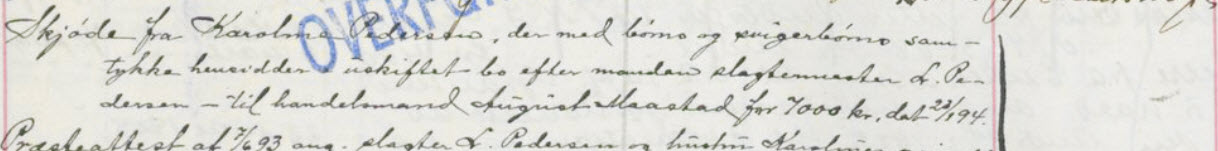 OVERF
Skjøde fra Karoline Pedersen, der med børns og svigerbørns sam-
tykke hensidder i uskiftet bo efter manden slagtermester L. Pe-
dersen - til handelsmand August Maastad for 7000 kr, dat 23/1 94.
Præsteattest af 7/6 93 ang. slagter L. Pedersen og hustru Karolines